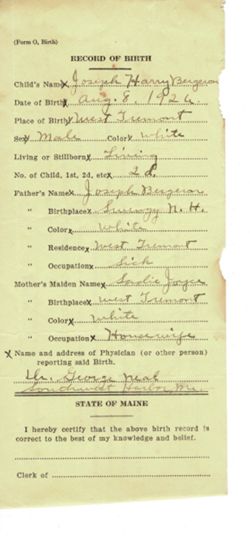 (Form O, Birth)
RECORD OF BIRTH
Child's Name Joseph Harry Bergeron
Date of Birth Aug. 8, 1926.
Place of Birth West Tremont
Sex Male Color White
Living or Stillborn Living
No. of Child, 1st, 2d, etc 2d.
Father's Name Joseph Bergeron
" Birthplace N. H.
" Color White
" Residence West Tremont
" Occupation Sick
Mother's Maiden Name Joyce
" Birthplace West Tremont
" Color White
" Occupation Housewife
Name and address of Physician (or other person)
reporting said Birth.
Dr. George Neal
Southwest Harbor, Me.
STATE OF MAINE
I hereby certify that the above birth record is
correct to the best of my knowledge and belief.
Clerk of